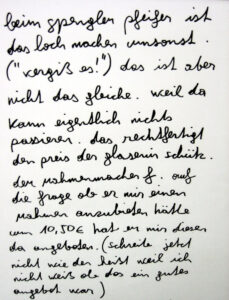 beim spengler pfeifer ist
das loch machen umsonst.
("vergiß es!") das ist aber
nicht das gleiche. weil da
kann eigentlich nichts
passieren. das rechtfertigt
den preis der glaserin schütz.
der rahmenmacher f. auf
die frage ob er mir einen
rahmen anzubieten hätte
um 10,50€ hat er mir diesen
da angeboten. (schreibe jetzt
nicht wie der heißt weil ich
nicht weiß ob das ein gutes
angebot war)